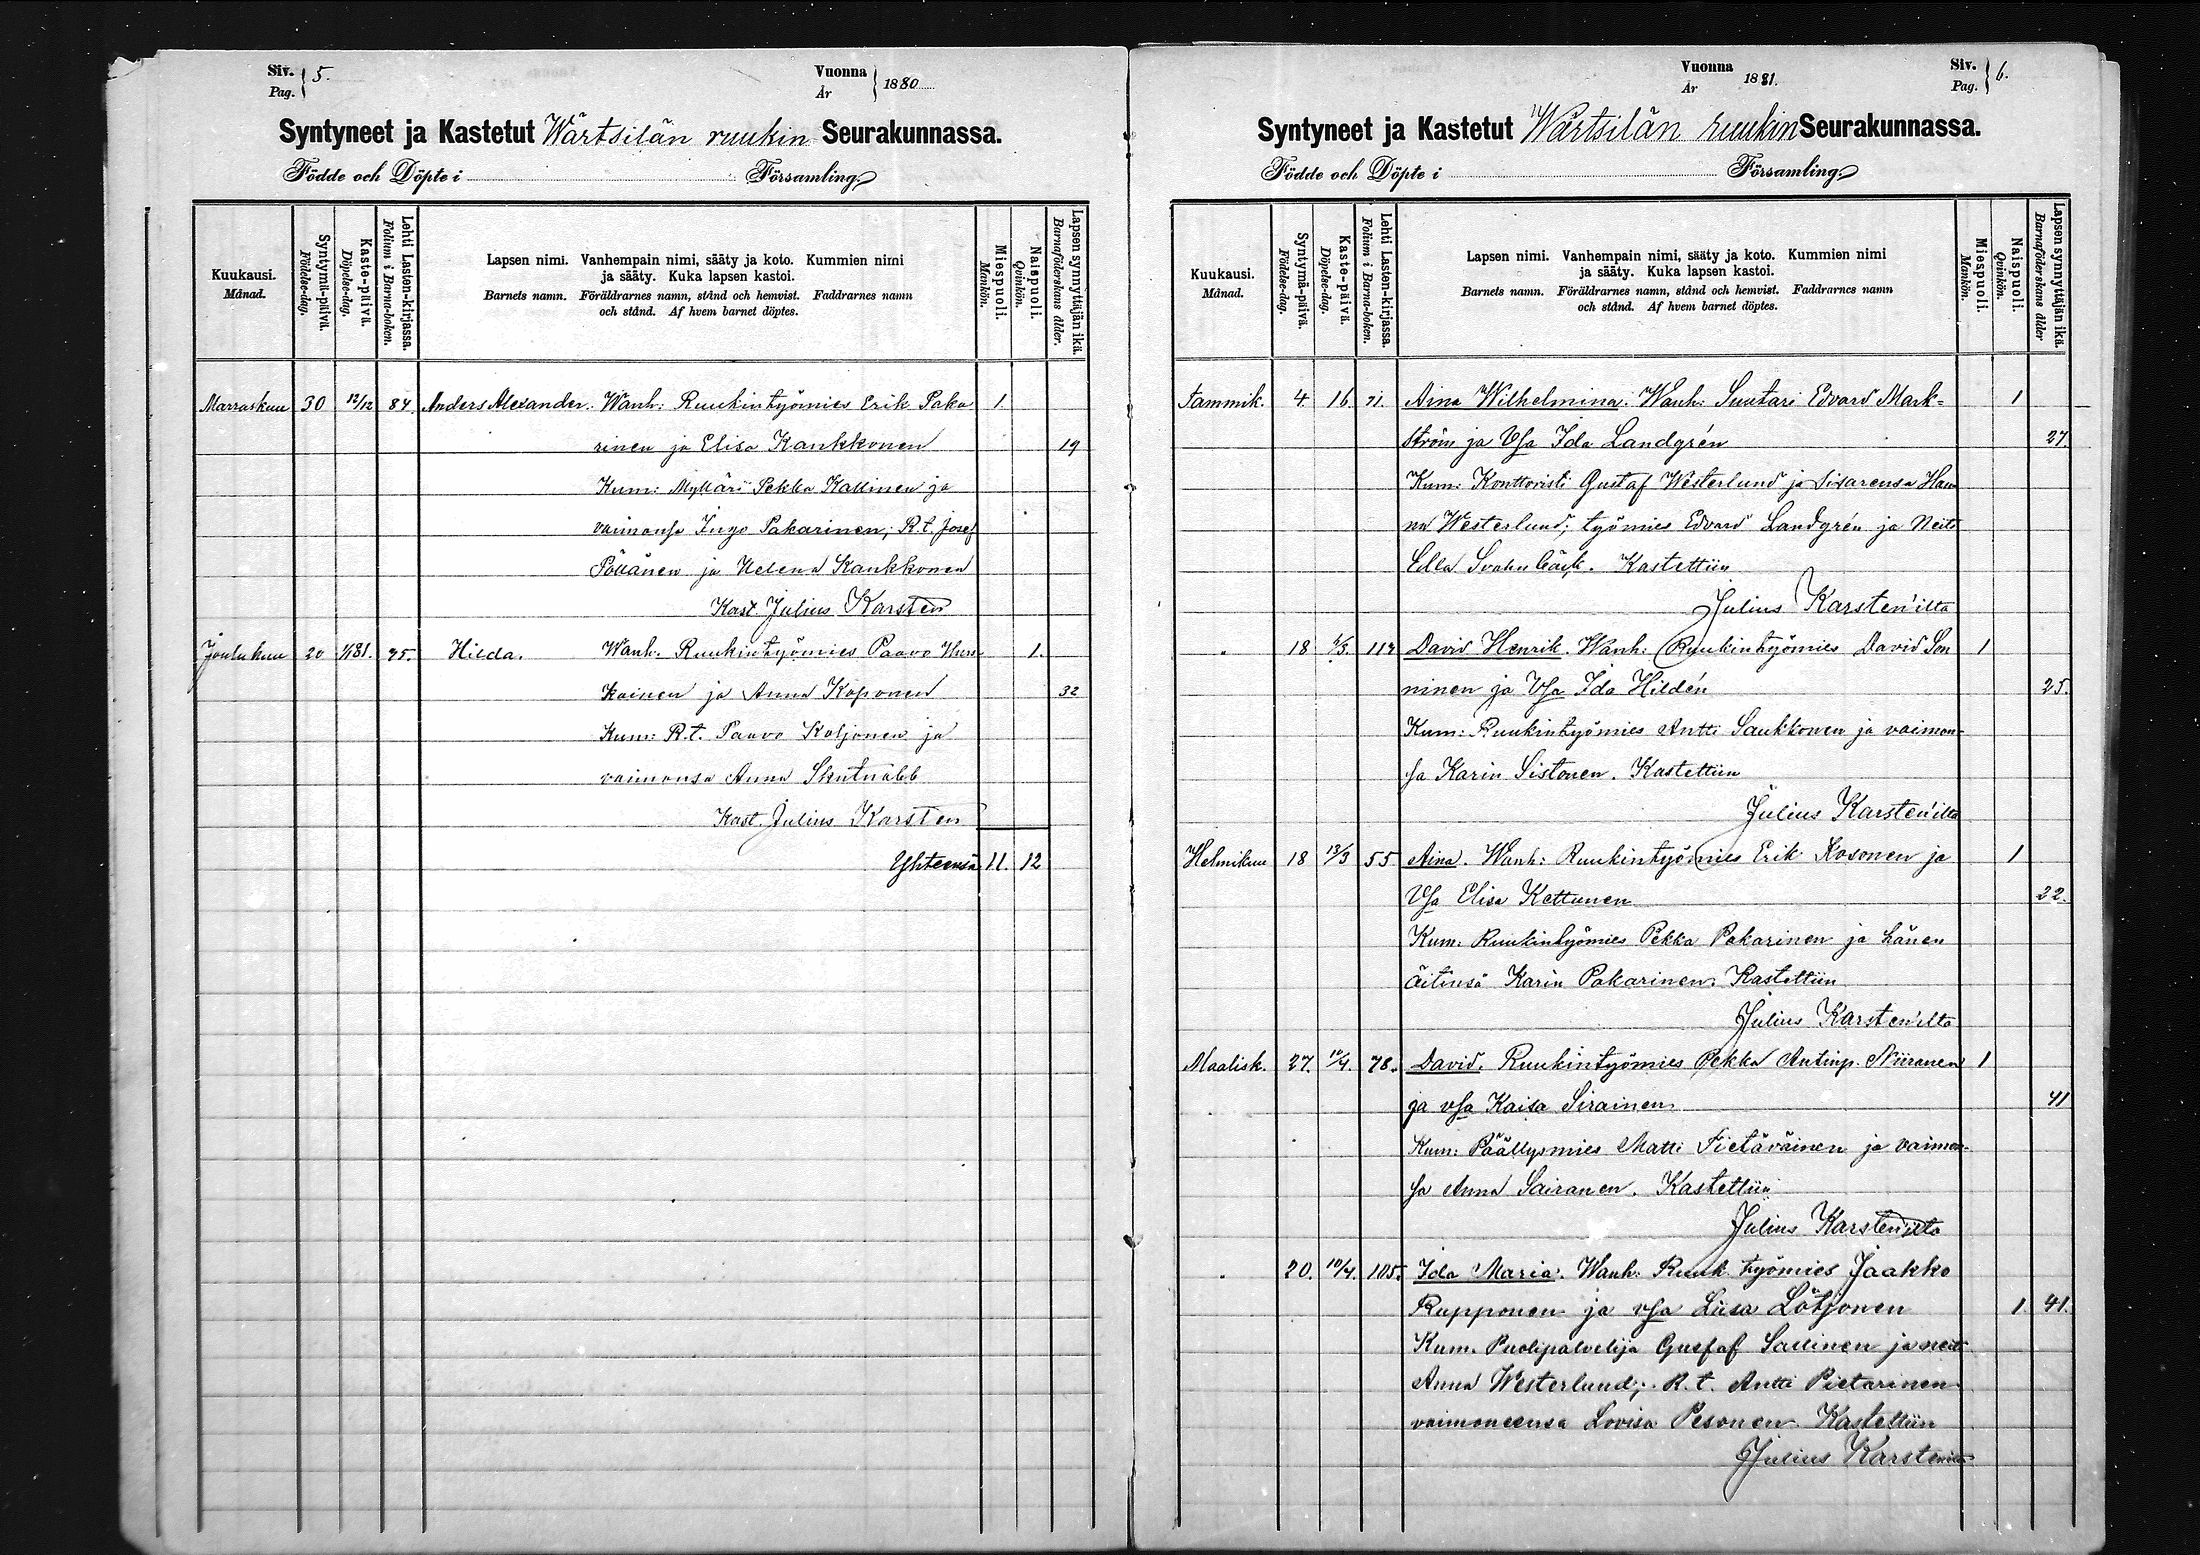 Siv. 5.
Pag.
Vuonna 1880
År
Syntyneet ja Kastetut Wärtsilän ruukin Seurakunnassa.
Födde och Döpte i Församling
Kuukausi. Månad.
Syntymä-päivä. Födelse-dag.
Kaste-päivä. Döpelse-dag.
Lehti Lasten-kirjassa. Folium i Barna-boken.
Lapsen nimi. Vanhempain nimi, sääty ja koto. Kummien nimi
ja sääty. Kuka lapsen kastoi.
Barnets namn. Föräldrarnes namn, stånd och hemvist. Faddrarnes namn
och stånd. Af hvem barnet döptes.
Miespuoli. Mankön.
Naispuoli. Qvinkön.
Lapsen synnyttäjän ikä. Barnaföderskans ålder.
Marraskuu 30 12/12 84 Anders Alexander. Wanh: Ruukintyömies Erik Paka 1.
rinen ja Elisa Kankkonen 19
Kum: Mylläri Pekka Kallinen ja
vaimonsa Inga Pakarinen; R.t. Josef
Pöllänen ja Helena Kankkonen
Kast. Julius Karsten
Joulukuu 20 1/1 81. 95. Hilda. Wanh. Ruukintyömies Paavo 1.
kainen ja Anna Koponen 32
Kum: R.t. Paavo Koljonen ja
vaimonsa Anna Skutnabb
Kast. Julius Karsten
Yhteensä 11. 12
Siv. 6.
Pag.
Vuonna 1881.
År
Syntyneet ja Kastetut Wärtsilän ruukin Seurakunnassa.
Födde och Döpte i Församling
Kuukausi. Månad.
Syntymä-päivä. Födelse-dag.
Kaste-päivä. Döpelse-dag.
Lehti Lasten-kirjassa. Folium i Barna-boken.
Lapsen nimi. Vanhempain nimi, sääty ja koto. Kummien nimi
ja sääty. Kuka lapsen kastoi.
Barnets namn. Föräldrarnes namn, stånd och hemvist. Faddrarnes namn
och stånd. Af hvem barnet döptes.
Miespuoli. Mankön.
Naispuoli. Qvinkön.
Lapsen synnyttäjän ikä. Barnaföderskans ålder
Tammik. 4. 16. 71. Aina Wilhelmina. Wanh: Suutari Edvard Mark= 1
ström ja Vsa Ida Landgrén 27.
Kum: Konttoristi Gustaf Westerlund ja Sisarensa Han
na Westerlund; työmies Edvard Landgrén ja Neito
Ella Svahnbäck. Kastettiin
Julius Karsten'ilta
" 18 6/3. 117 David Henrik. Wanh: Ruukintyömies David Son 1
ninen ja Vsa Ida Hildén 25.
Kum: Ruukintyömies Antti Saukkonen ja vaimon-
sa Karin Sistonen. Kastettiin
Julius Karsten'ilta
Helmikuu 18 13/3 55 Aina. Wanh: Ruukintyömies Erik Kosonen ja 1
Vsa Elisa Kettunen 22.
Kum: Ruukintyömies Pekka Pakarinen ja hänen
äitinsä Karin Pakarinen. Kastettiin
Julius Karsten'ilta
Maalisk. 27. 10/4. 78. David. Ruukintyömies Pekka Antinp. Niiranen 1
ja vsa Kaisa Sirainen 41
Kum: Päällysmies Matti Tietäväinen ja vaimon-
sa Anna Sairanen. Kastettiin
Julius Karsten'ilta
" 20. 10/4. 105. Ida Maria. Wanh: Ruuk. työmies Jaakko
Rupponen ja vsa Liisa Lötjonen 1. 41.
Kum. Puolipalvelija Gustaf Sallinen ja neit
Anna Westerlund; R.t. Antti Pietarinen
vaimoneensa Lovisa Pesonen Kastettiin
Julius Karsten'ilta